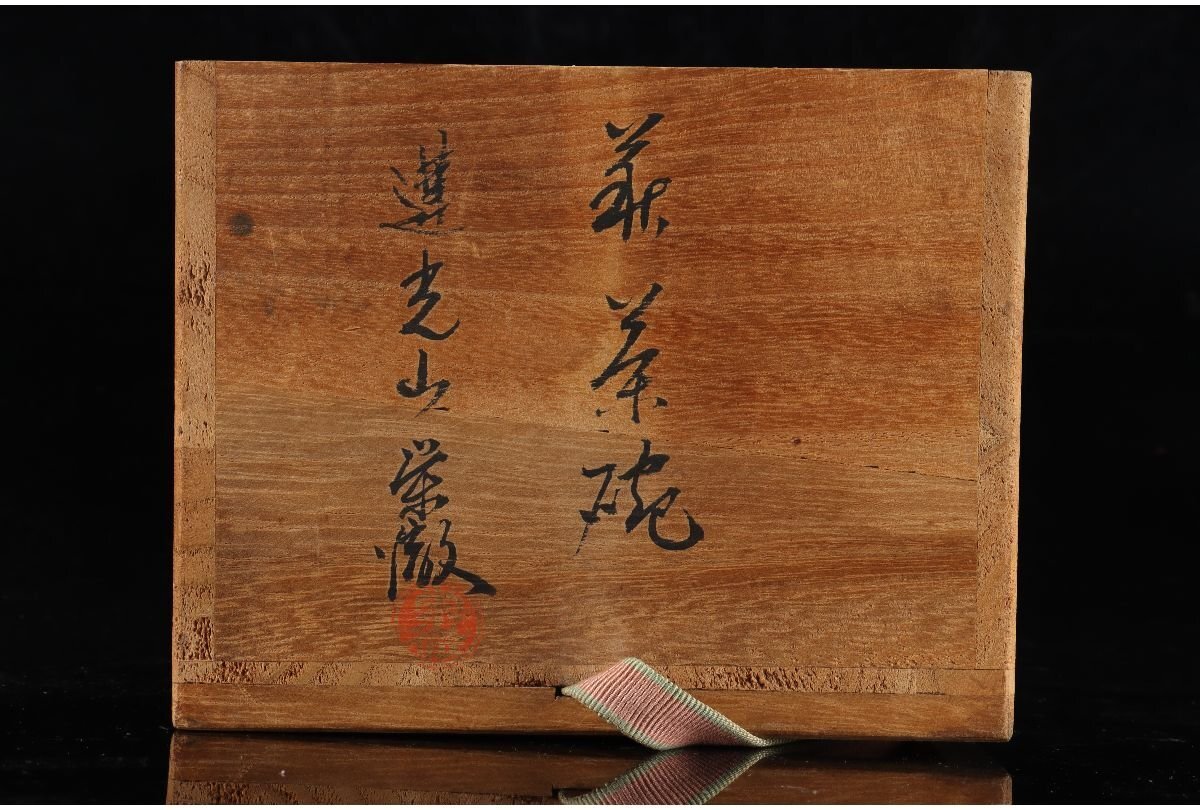 萩茶碗
蓮光山栄徹